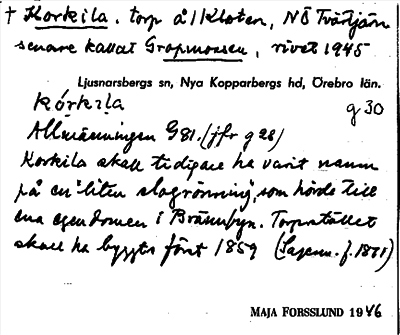 † Korkila. torp å/Kloten, NÖ Tvätjärn
senare kallat Gropmossen, rivet 1945
Ljusnarsbergs sn, Nya Kopparbergs hd, Örebro län.
kórkịla g 30
Allmänningen G81. (jfr g 28)
Korkila skall tidigare ha varit namn
på en liten slogrönning, som hörde till
ena egendomen i Brännbyn. Torpstället
skall ha byggts först 1859 (Sagesm. f. 1871)
MAJA FORSSLUND 1946